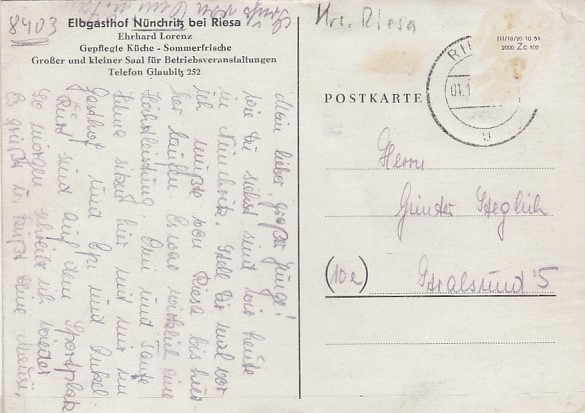 8403
Elbgasthof Nünchritz bei Riesa
Ehrhard Lorenz
Gepflegte Küche - Sommerfrische
Großer und kleiner Saal für Betriebsveranstaltungen
Telefon Glaubitz 252
Mein lieber, großer Junge!
Wie Du siehst sind wir heute
in Nünchritz. Stell Dir mal vor
ich mußte von Riesa bis hier-
her laufen. Es war wirklich eine
Höchstleistung. Omi und Tante
sitzt hier mit mir im
Gasthof und Opi und Onkel
Kurt sind auf dem Sportplatz
So morgen schreibe ich wieder
Es grüßt u. küßt Deine
Krs. Riesa
III/18/20 10 51
2000 Zc 102
RI
01.1
g
POSTKARTE
Herrn
Günter Steglich
(10a) Stralsund 5